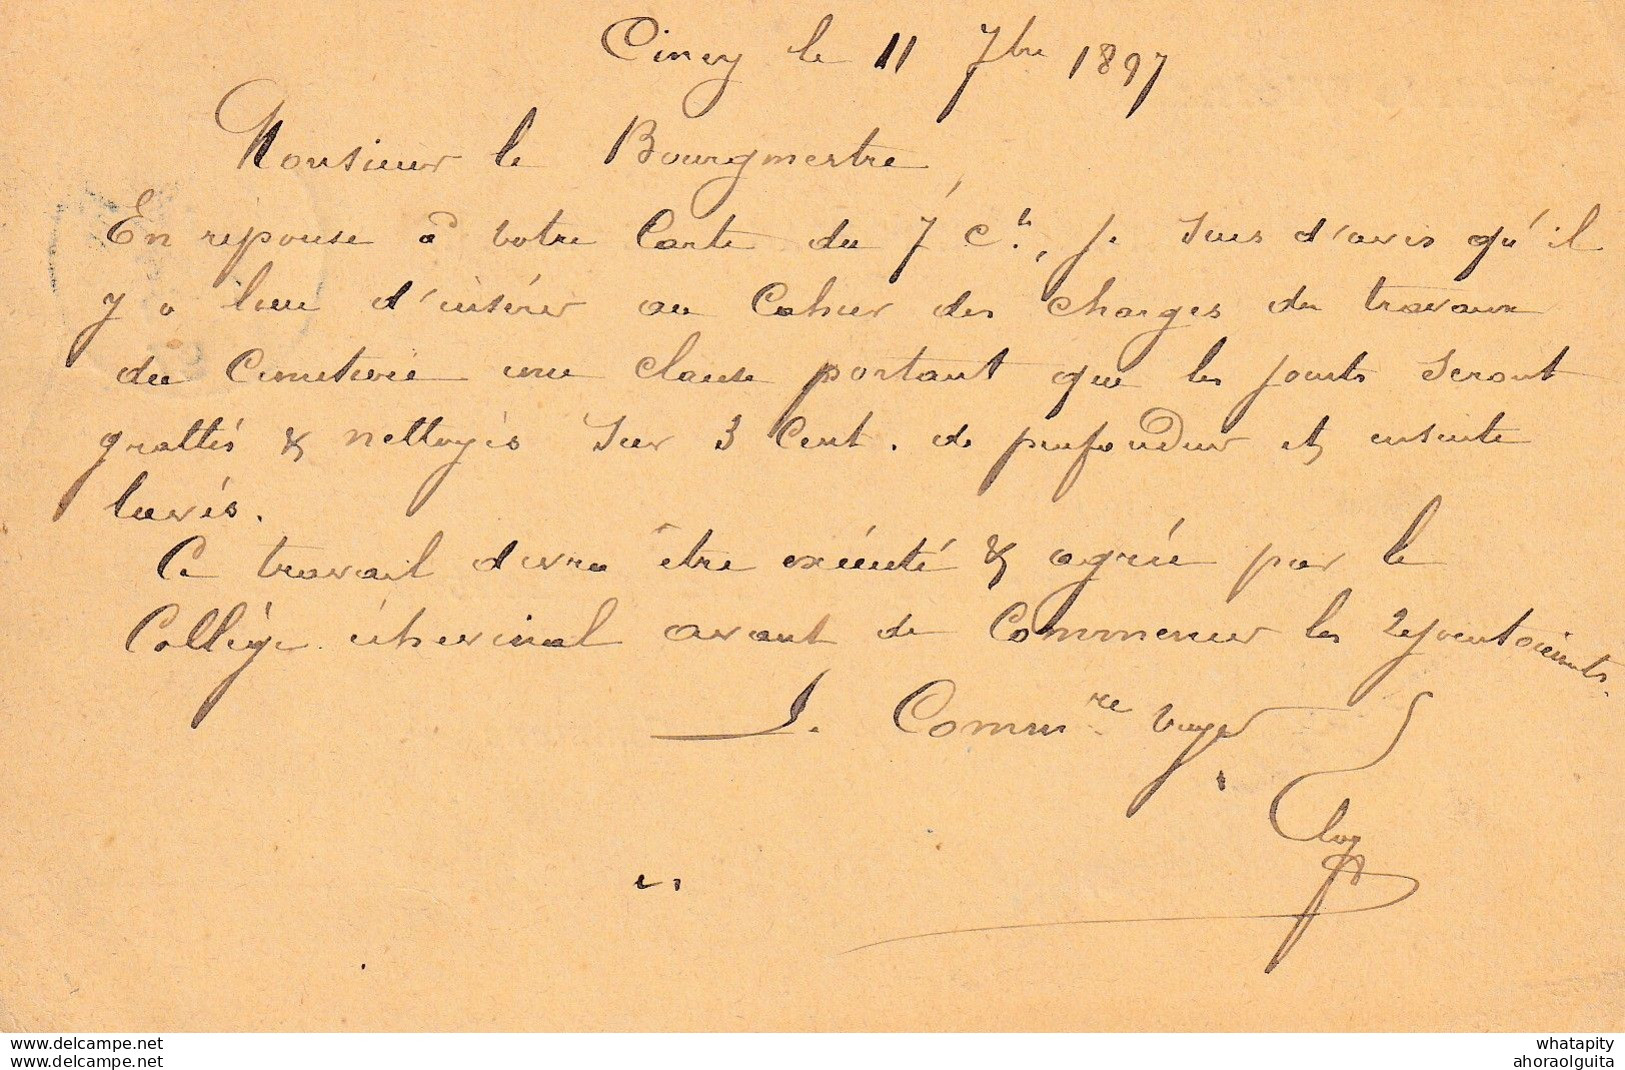 Ciney le 11 7bre 1897
Monsieur le Bourgmestre,
En réponse à votre Carte du 7 Ct, Je Suis d'avis qu'il
y a lieu d'insérer au Cahier des Charges des travaux
du Cimetière une clause portant que les joints Seront
grattés & nettoyés Sur 3 Cent. de profondeur et ensuite
lavés.
Ce travail devra être exécuté & agréé par le
Collège échevinal avant de Commencer les rejointoiements.
Le Commre voyer
whatapity
ahoraolguita
www.delcampe.net
www.delcampe.net